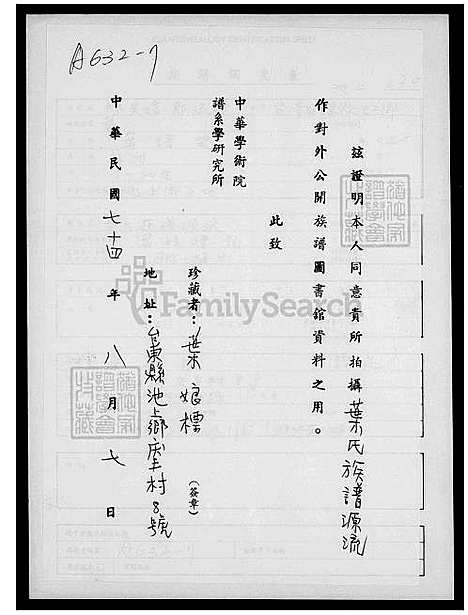 A632-7
茲證明本人同意貴所拍攝葉氏族譜源流
作對外公開族譜圖書館資料之用。
此致
中華學術院
譜系學研究所
珍藏者：葉娘標（簽章）
地址：台東縣池上鄉 村8號
中華民國七十四年八月七日
FamilySearch